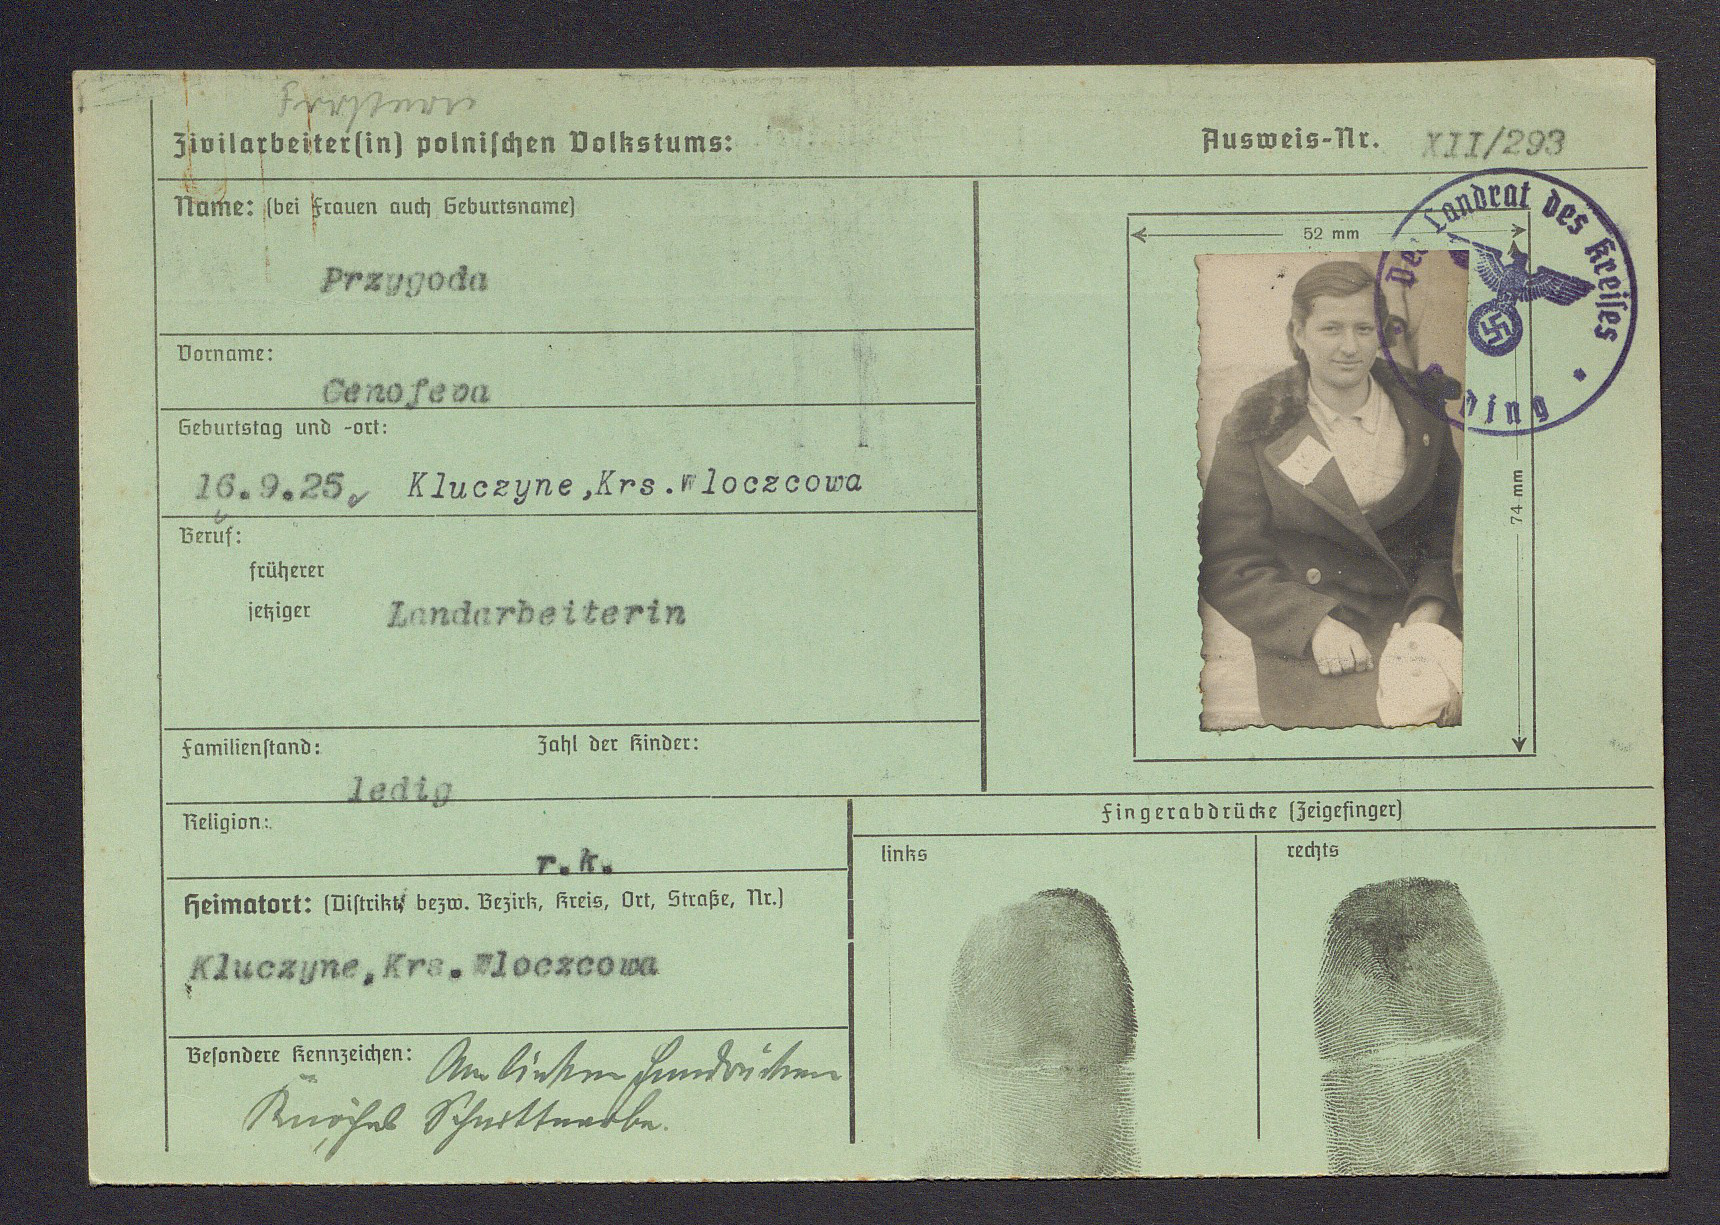 Zivilarbeiter(in) polnischen Volkstums:
Ausweis-Nr. XII/293
Name: (bei Frauen auch Geburtsname)
Przygoda
Vorname:
Genofeva
Geburtstag und -ort:
16.9.25. Kluczyne,Krs.Wloczcowa
Beruf:
früherer
jetziger Landarbeiterin
Familienstand: Zahl der Kinder:
ledig
Religion:
r.k.
Heimatort: (Distrikt, bezw. Bezirk, Kreis, Ort, Straße, Nr.)
Kluczyne,Krs.Wloczcowa
Besondere Kennzeichen: Am linken Handrücken
Schnittnarbe.
52 mm
74 mm
Der Landrat des Kreises
Fingerabdrücke (Zeigefinger)
links
rechts